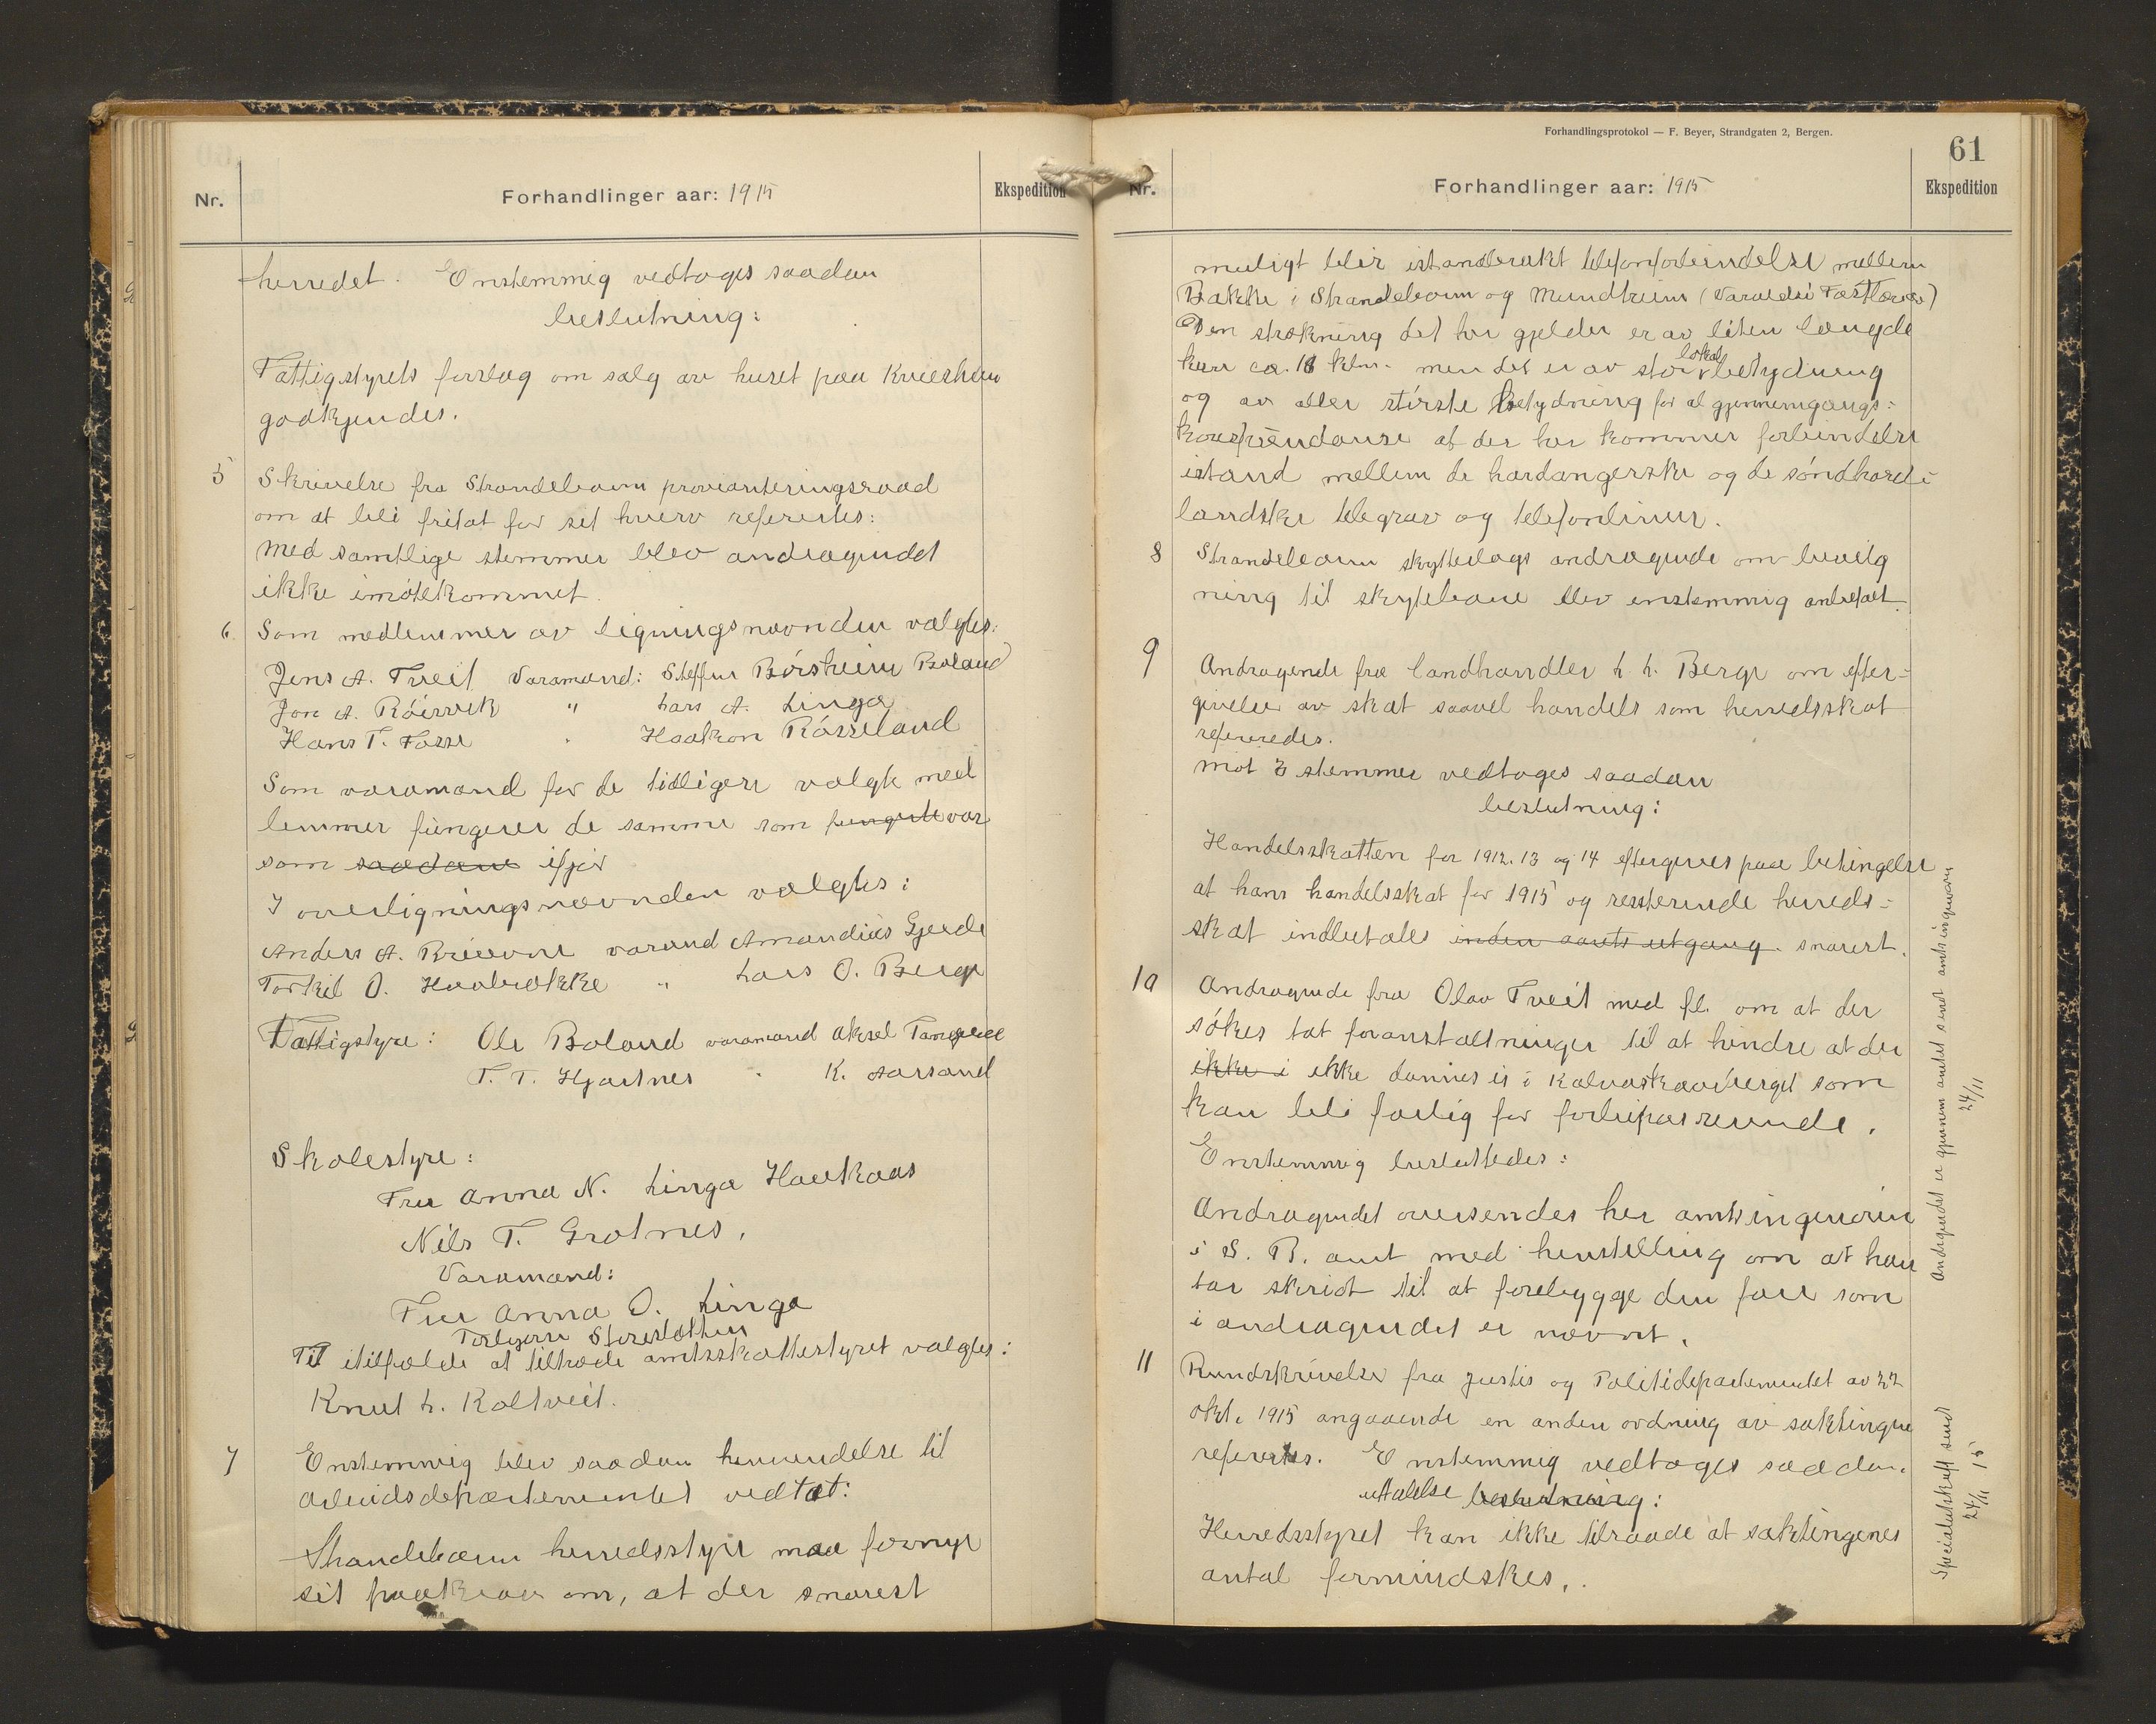 Nr.
Forhandlinger aar: 1915
Ekspedition
herredet. Enstemmig vedtoges saadan
beslutning:
Fattigstyrets forslag om salg av huset paa
godkjendes.
5 Skrivelse fra Strandebarm provianteringsraad
om at bli fritat for sit hverv refereredes:
Med samtlige stemmer blev andragendet
ikke imøtekommet.
6. Som medlemmer av ligningsnævnden valgtes:
Jens A. Tveit Varamand: Steffen Børsheim Boland
Jon A. Røirvik " Lars A. Linga
Hans T. Fosse " Haakon Røsseland
Som varamænd for de tidligere valgte med
lemmer fungerer de samme som fungerte var
som saadane ifjor
I overligningsnævnden valgtes:
Anders A. varamd Amandus Gjerde
Torkil O. Haabrekke " Lars O. Berge
Fattigstyre: Ole Boland varamand Aksel Tangerås
T. T. Hjartnes " K. Aarsand
Skolestyre:
Fru Anna N. Linga Haukaas
Nils T. Grotnes,
Varamænd:
Fru Anna O. Linga
Torbjørn Storesletten
Til itilfælde at tiltræde amtsskattestyret valgtes:
Knut L. Koltveit.
7 Enstemmig blev saadan henvendelse til
Arbeidsdepartementet vedtat:
Strandebarm herredsstyre maa fornye
sit paakrav om, at der snarest
Forhandlingsprotokol — F. Beyer, Strandgaten 2, Bergen.
61
Nr.
Forhandlinger aar: 1915
Ekspedition
muligt blir istandbrakt telefonforbindelse mellem
Bakke i Strandebarm og Mundheim (Varaldsø Fastland)
Den strekning det her gjelder er av liten længde
kun ca. 18 klm. men det er av stor lokal betydning
og av aller største betydning for al gjennemgangs-
korespondanse at der her kommer forbindelse
istand mellem de hardangerske og de søndhord-
landske telegraf og telefonlinier.
8 Strandebarm skytterlags andragende om bevilg
ning til skytebane blev enstemmig anbefalt.
9 Andragende fra landhandler L. L. Berge om efter-
givelse av skat saavel handels som herredsskat
refereredes.
Mot 3 stemmer vedtoges saadan
beslutning:
Handelsskatten for 1912. 13 og 14 eftergives paa betingelse
at hans handelsskat for 1915 og resterende herreds-
skat indbetales inden aarets utgang snarest.
10 Andragende fra Olav Tveit med fl. om at der
søkes tat foranstaltninger til at hindre at der
ikke i ikke dannes is i som
kan bli farlig for forbipasserende.
Enstemmig besluttedes:
Andragendet oversendes her amtsingeniøren
i S. B. amt med henstilling om at han
tar skridt til at forebygge den fare som
i andragendet er nævnt.
11 Rundskrivelse fra Justis og Politidepartementet av 22
okt. 1915 angaaende en anden ordning av saktingene
refereredes. Enstemmig vedtoges saadan
uttalelse beslutning:
Herredsstyret kan ikke tilraade at saktingenes
antal formindskes.
Andragendet er gjennem amtet sendt amtsingeniøren
24/11
Specialutskrift sendt
24/11 15